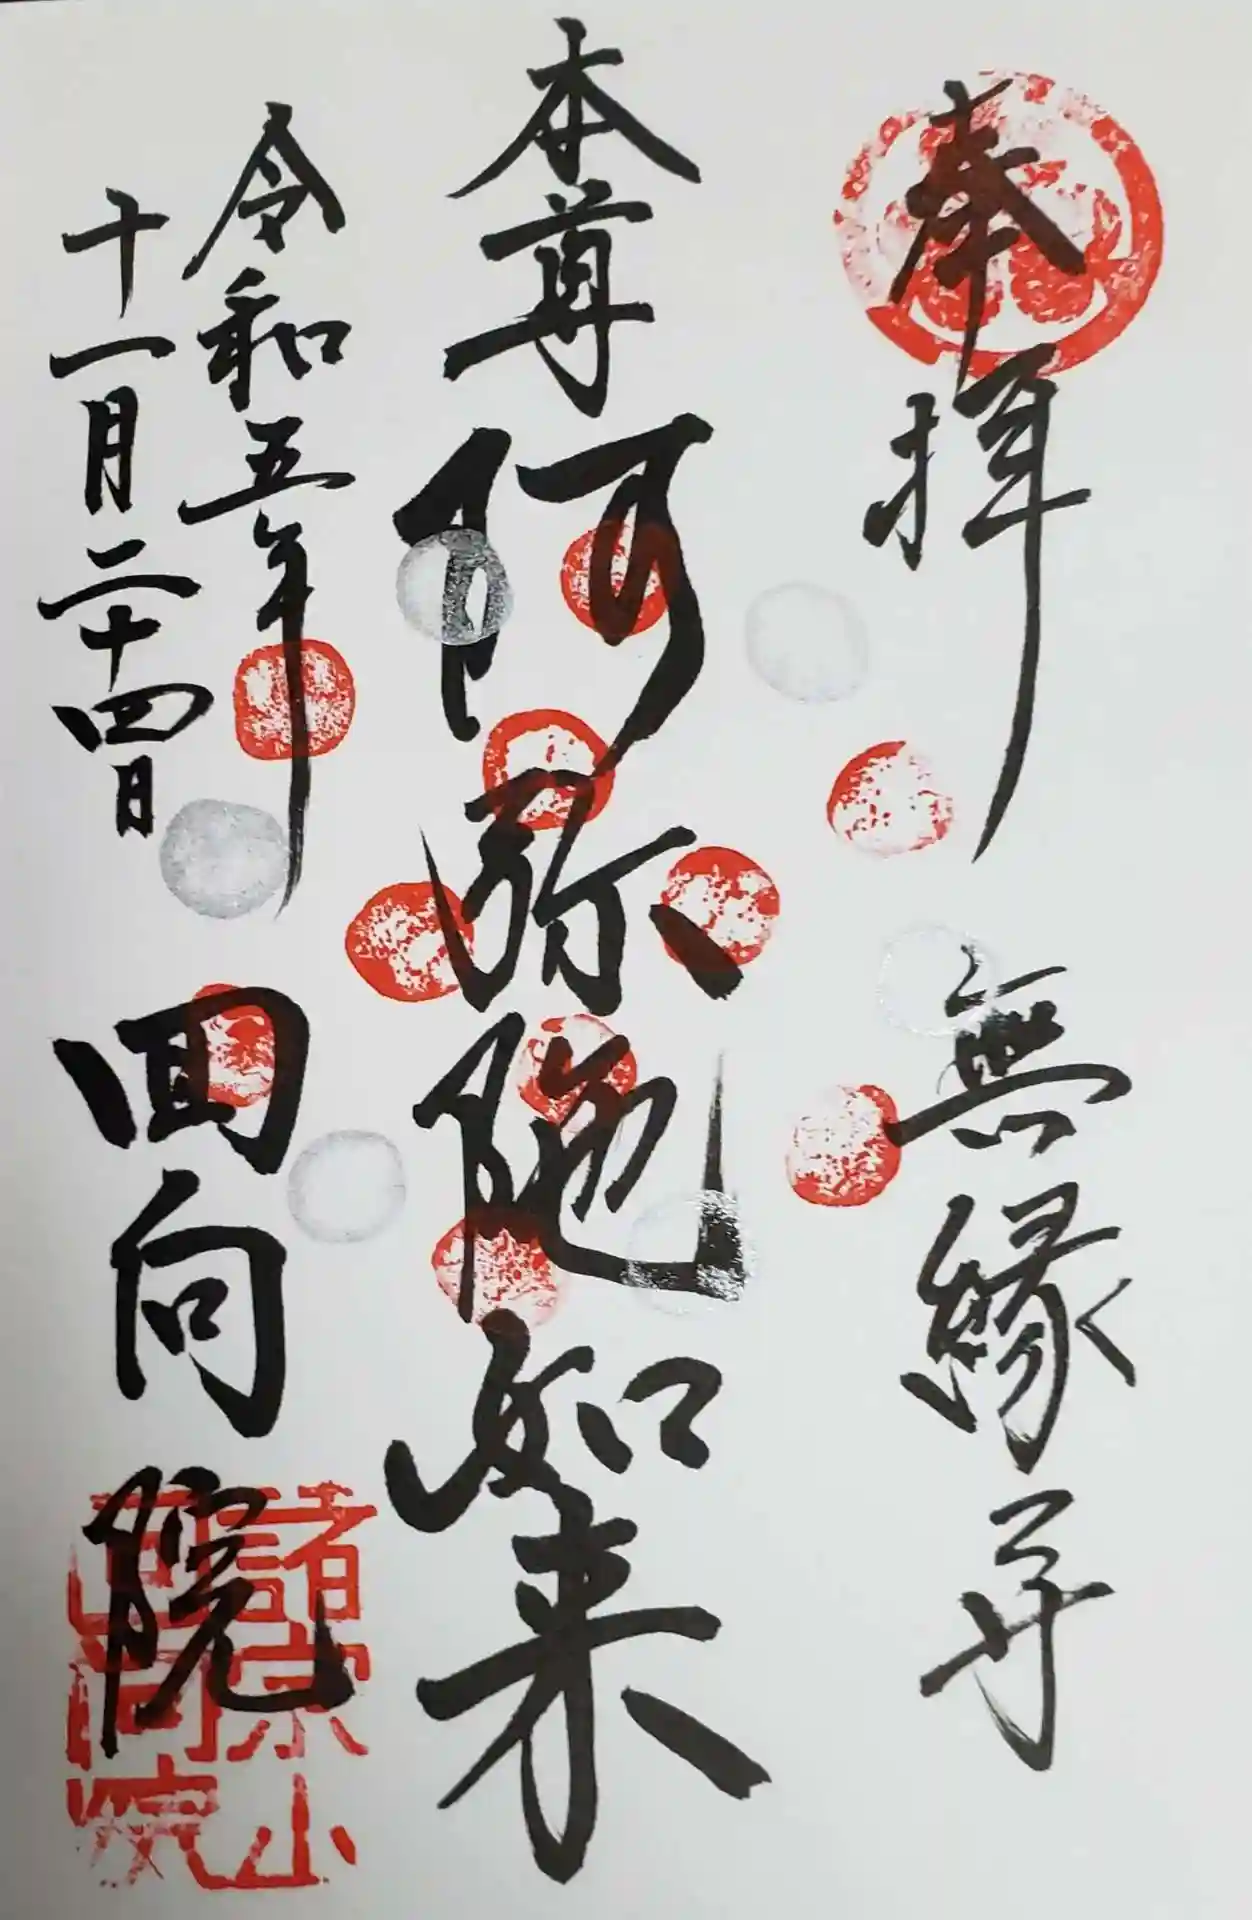 奉拝
無縁寺
本尊
阿弥陀如来
令和五年
十一月二十四日
回向院
諸宗山
回向院